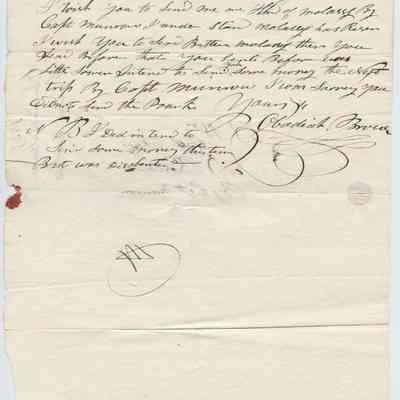 I Wish you to Send me one Hhd of molases By
Capt Munrow I under stand molases has Risen
I wish you to Send Better molases then you
Send Before that you Sent Before was
Little Sower I intend to Send Some money the next
trip By Capt Munrow I am Sorrey you
Did not Send the Pork Yours &c
Obadiah Brown
N B I Did intend to
Send Some money this time
But was